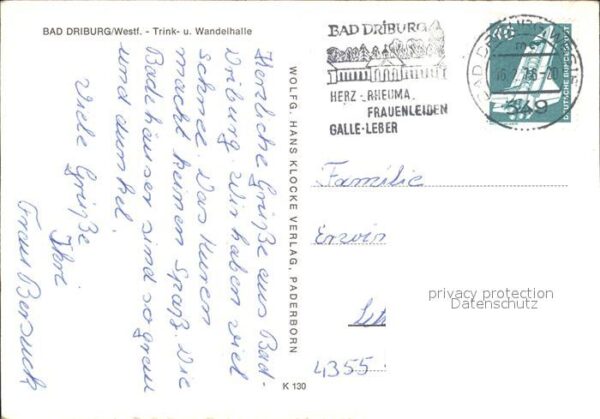 BAD DRIBURG/Westf. - Trink- u. Wandelhalle
Herzliche Grüße aus Bad-
Driburg. Wir haben viel
Schnee. Das Kuren
macht keinen Spaß. Die
Badehäuser sind so grau
und dunkel.
Viele Grüße
Ihre
Frau
WOLFG. HANS KLOCKE VERLAG, PADERBORN
K 130
BAD DRIBURG
HERZ-RHEUMA,
FRAUENLEIDEN
GALLE-LEBER
40
DEUTSCHE BUNDESPOST
349
Familie
Erwin
privacy protection
Datenschutz
4355